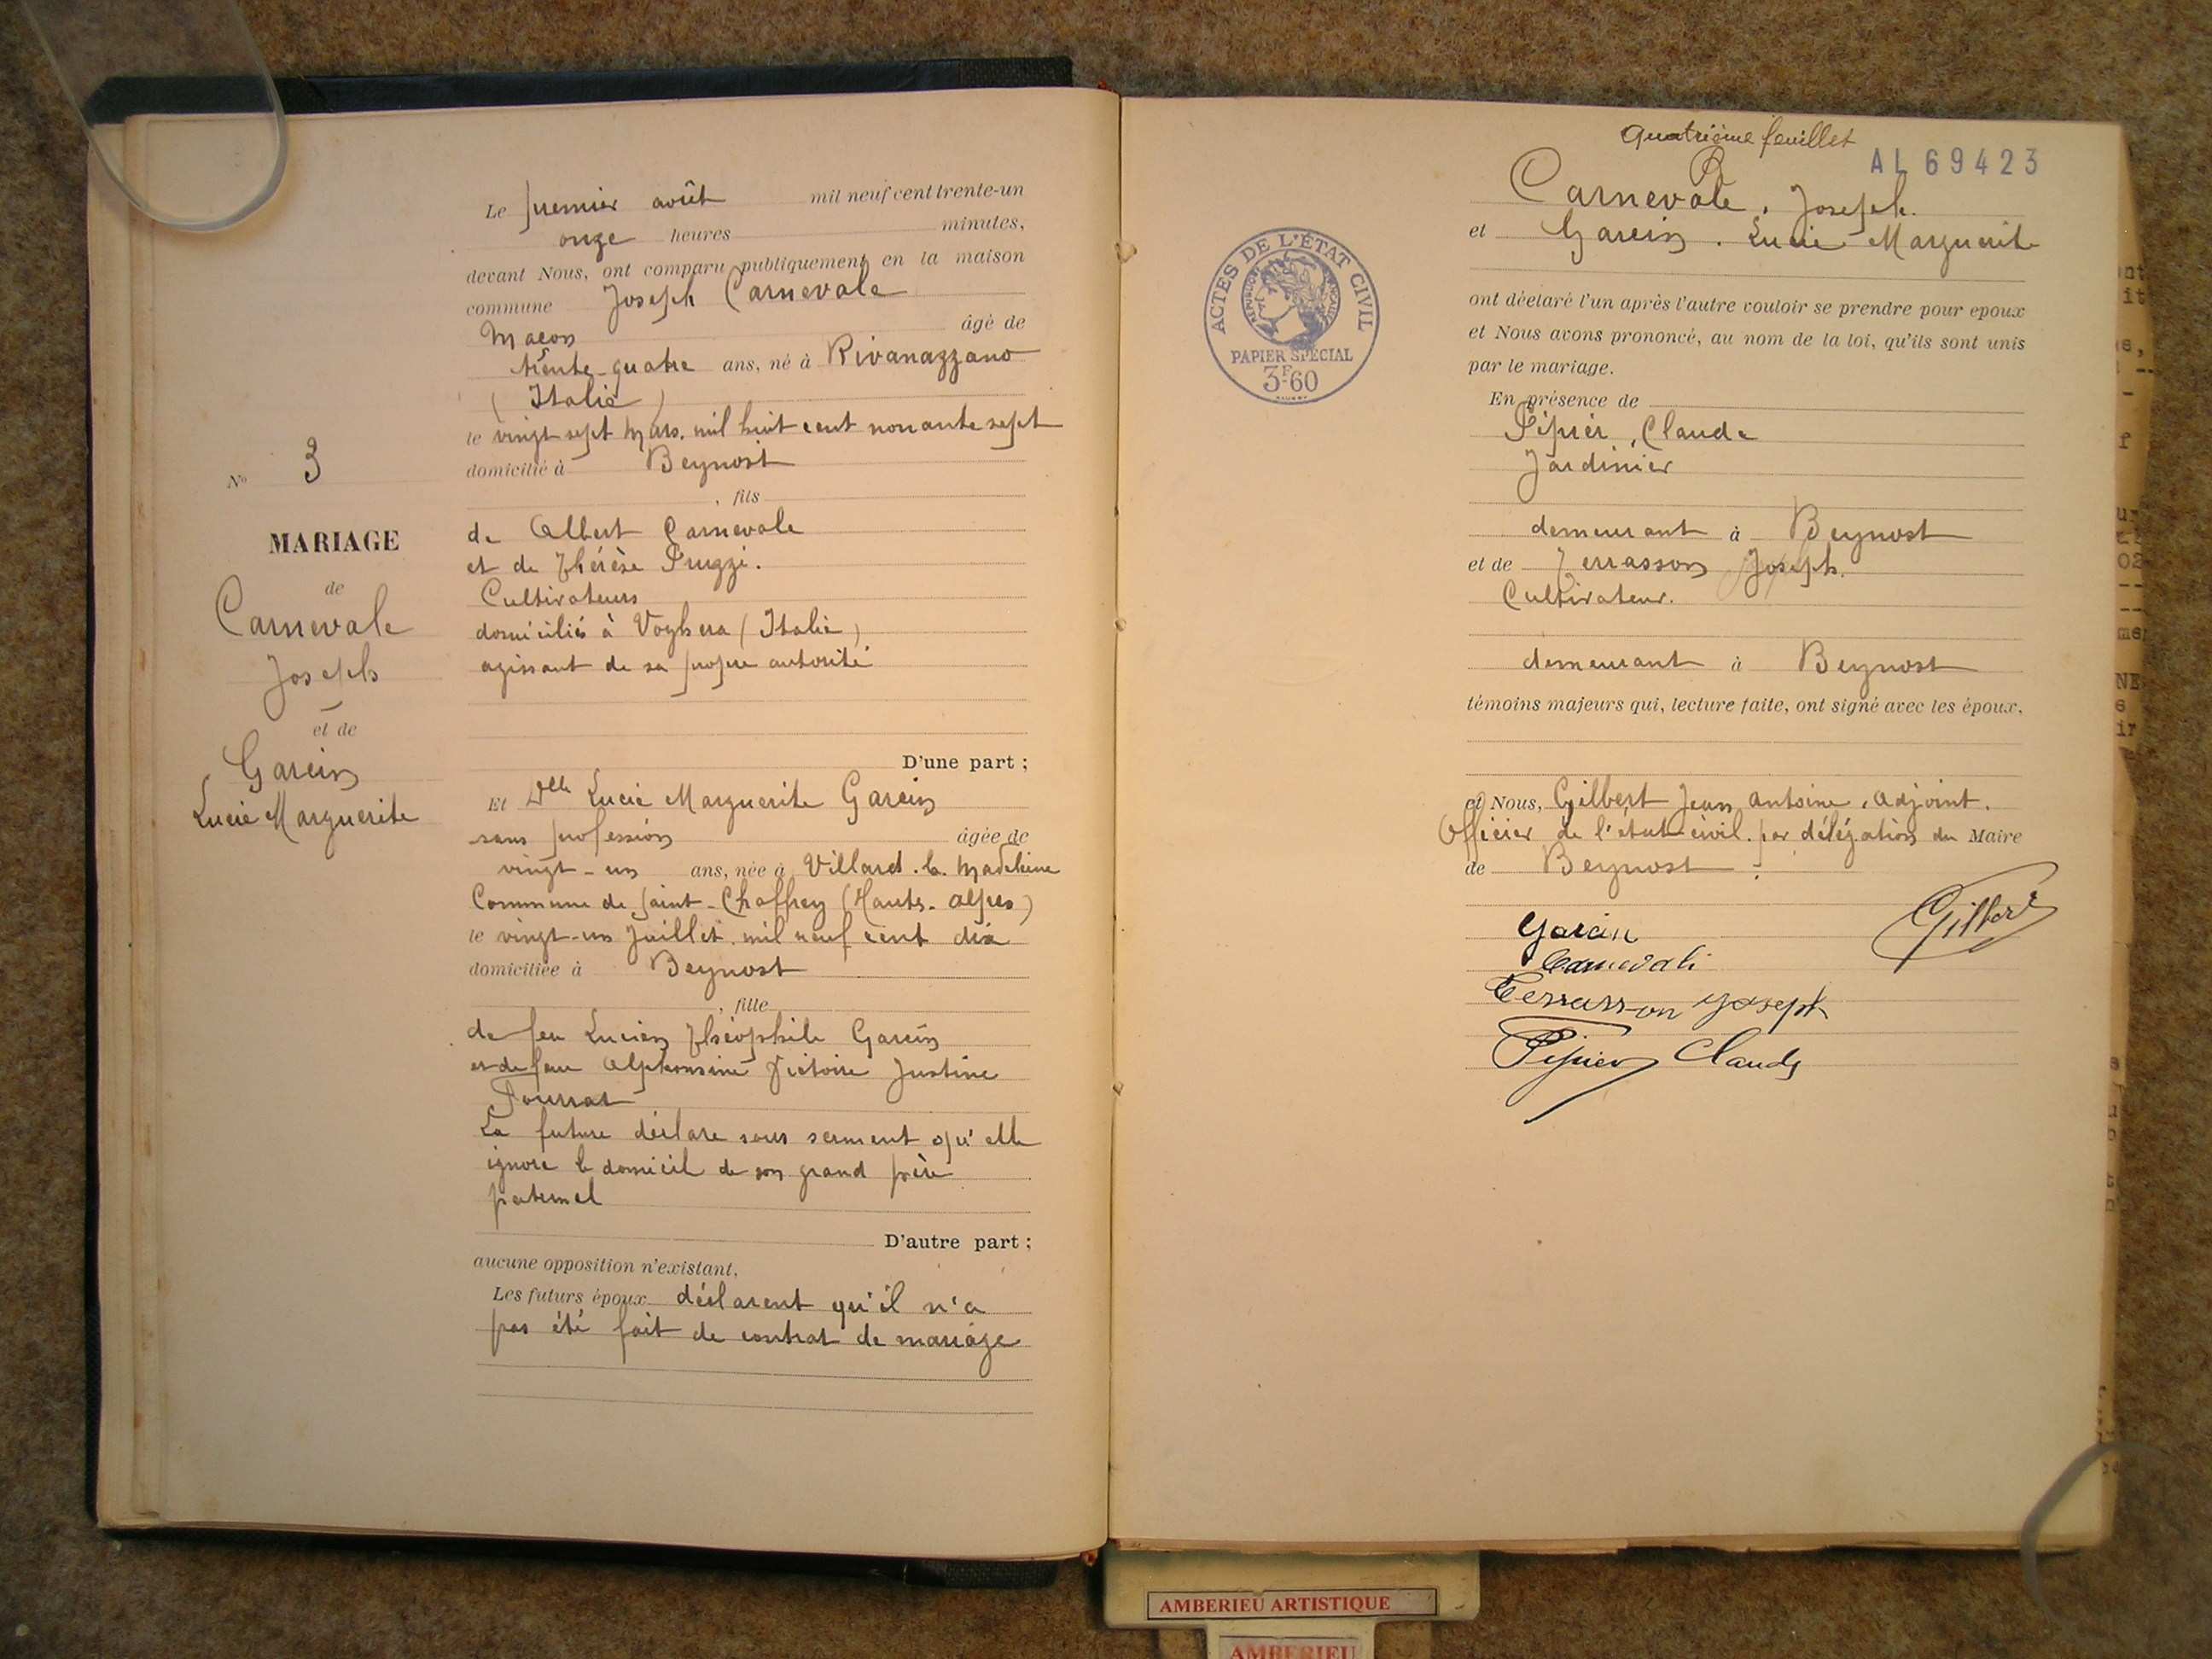 Le premier août mil neuf cent trente-un
onze heures minutes,
devant Nous, ont comparu publiquement en la maison
commune Joseph Carnevale
Maçon âgé de
trente-quatre ans, né à Rivanazzano
(Italie)
le vingt sept Mars. mil huit cent nonante sept
domicilié à Beynost
, fils
de Albert Carnevale
et de Thérèse
Cultivateurs
domiciliés à Voghera (Italie)
agissant de sa propre autorité
No 3
MARIAGE
de
Carnevale
Joseph
et de
Garcin
Lucie Marguerite
D'une part ;
Et Delle Lucie Marguerite Garcin
sans profession âgée de
vingt-un ans, née à Villard-la-Madeleine
Commune de Saint-Chaffrey (Hautes-Alpes)
le vingt-un Juillet. mil neuf cent dix
domiciliée à Beynost
, fille
de feu Lucien Théophile Garcin
et de feue Alphonsine Victoire Justine
Pourrat
La future déclare sous serment qu'elle
ignore le domicil de son grand père
paternel
D'autre part ;
aucune opposition n'existant,
Les futurs époux déclarent qu'il n'a
pas été fait de contrat de mariage
Quatrième feuillet
AL 69423
Carnevale, Joseph.
et Garcin. Lucie Marguerite
ACTES DE L'ÉTAT CIVIL
RÉPUBLIQUE FRANÇAISE
PAPIER SPÉCIAL
3F60
ont déclaré l'un après l'autre vouloir se prendre pour epoux
et Nous avons prononcé, au nom de la loi, qu'ils sont unis
par le mariage.
En présence de
Pépier, Claude
Jardinier
demeurant à Beynost
et de Terrasson Joseph.
Cultivateur.
demeurant à Beynost
témoins majeurs qui, lecture faite, ont signé avec les époux,
et Nous, Gilbert Jean Antoine, adjoint.
Officier de l'état-civil. par délégation du Maire
de Beynost.
Garcin
Gilbert
Carnevali
Terrasson Joseph
Pépier Claude
AMBERIEU ARTISTIQUE
AMBERIEU